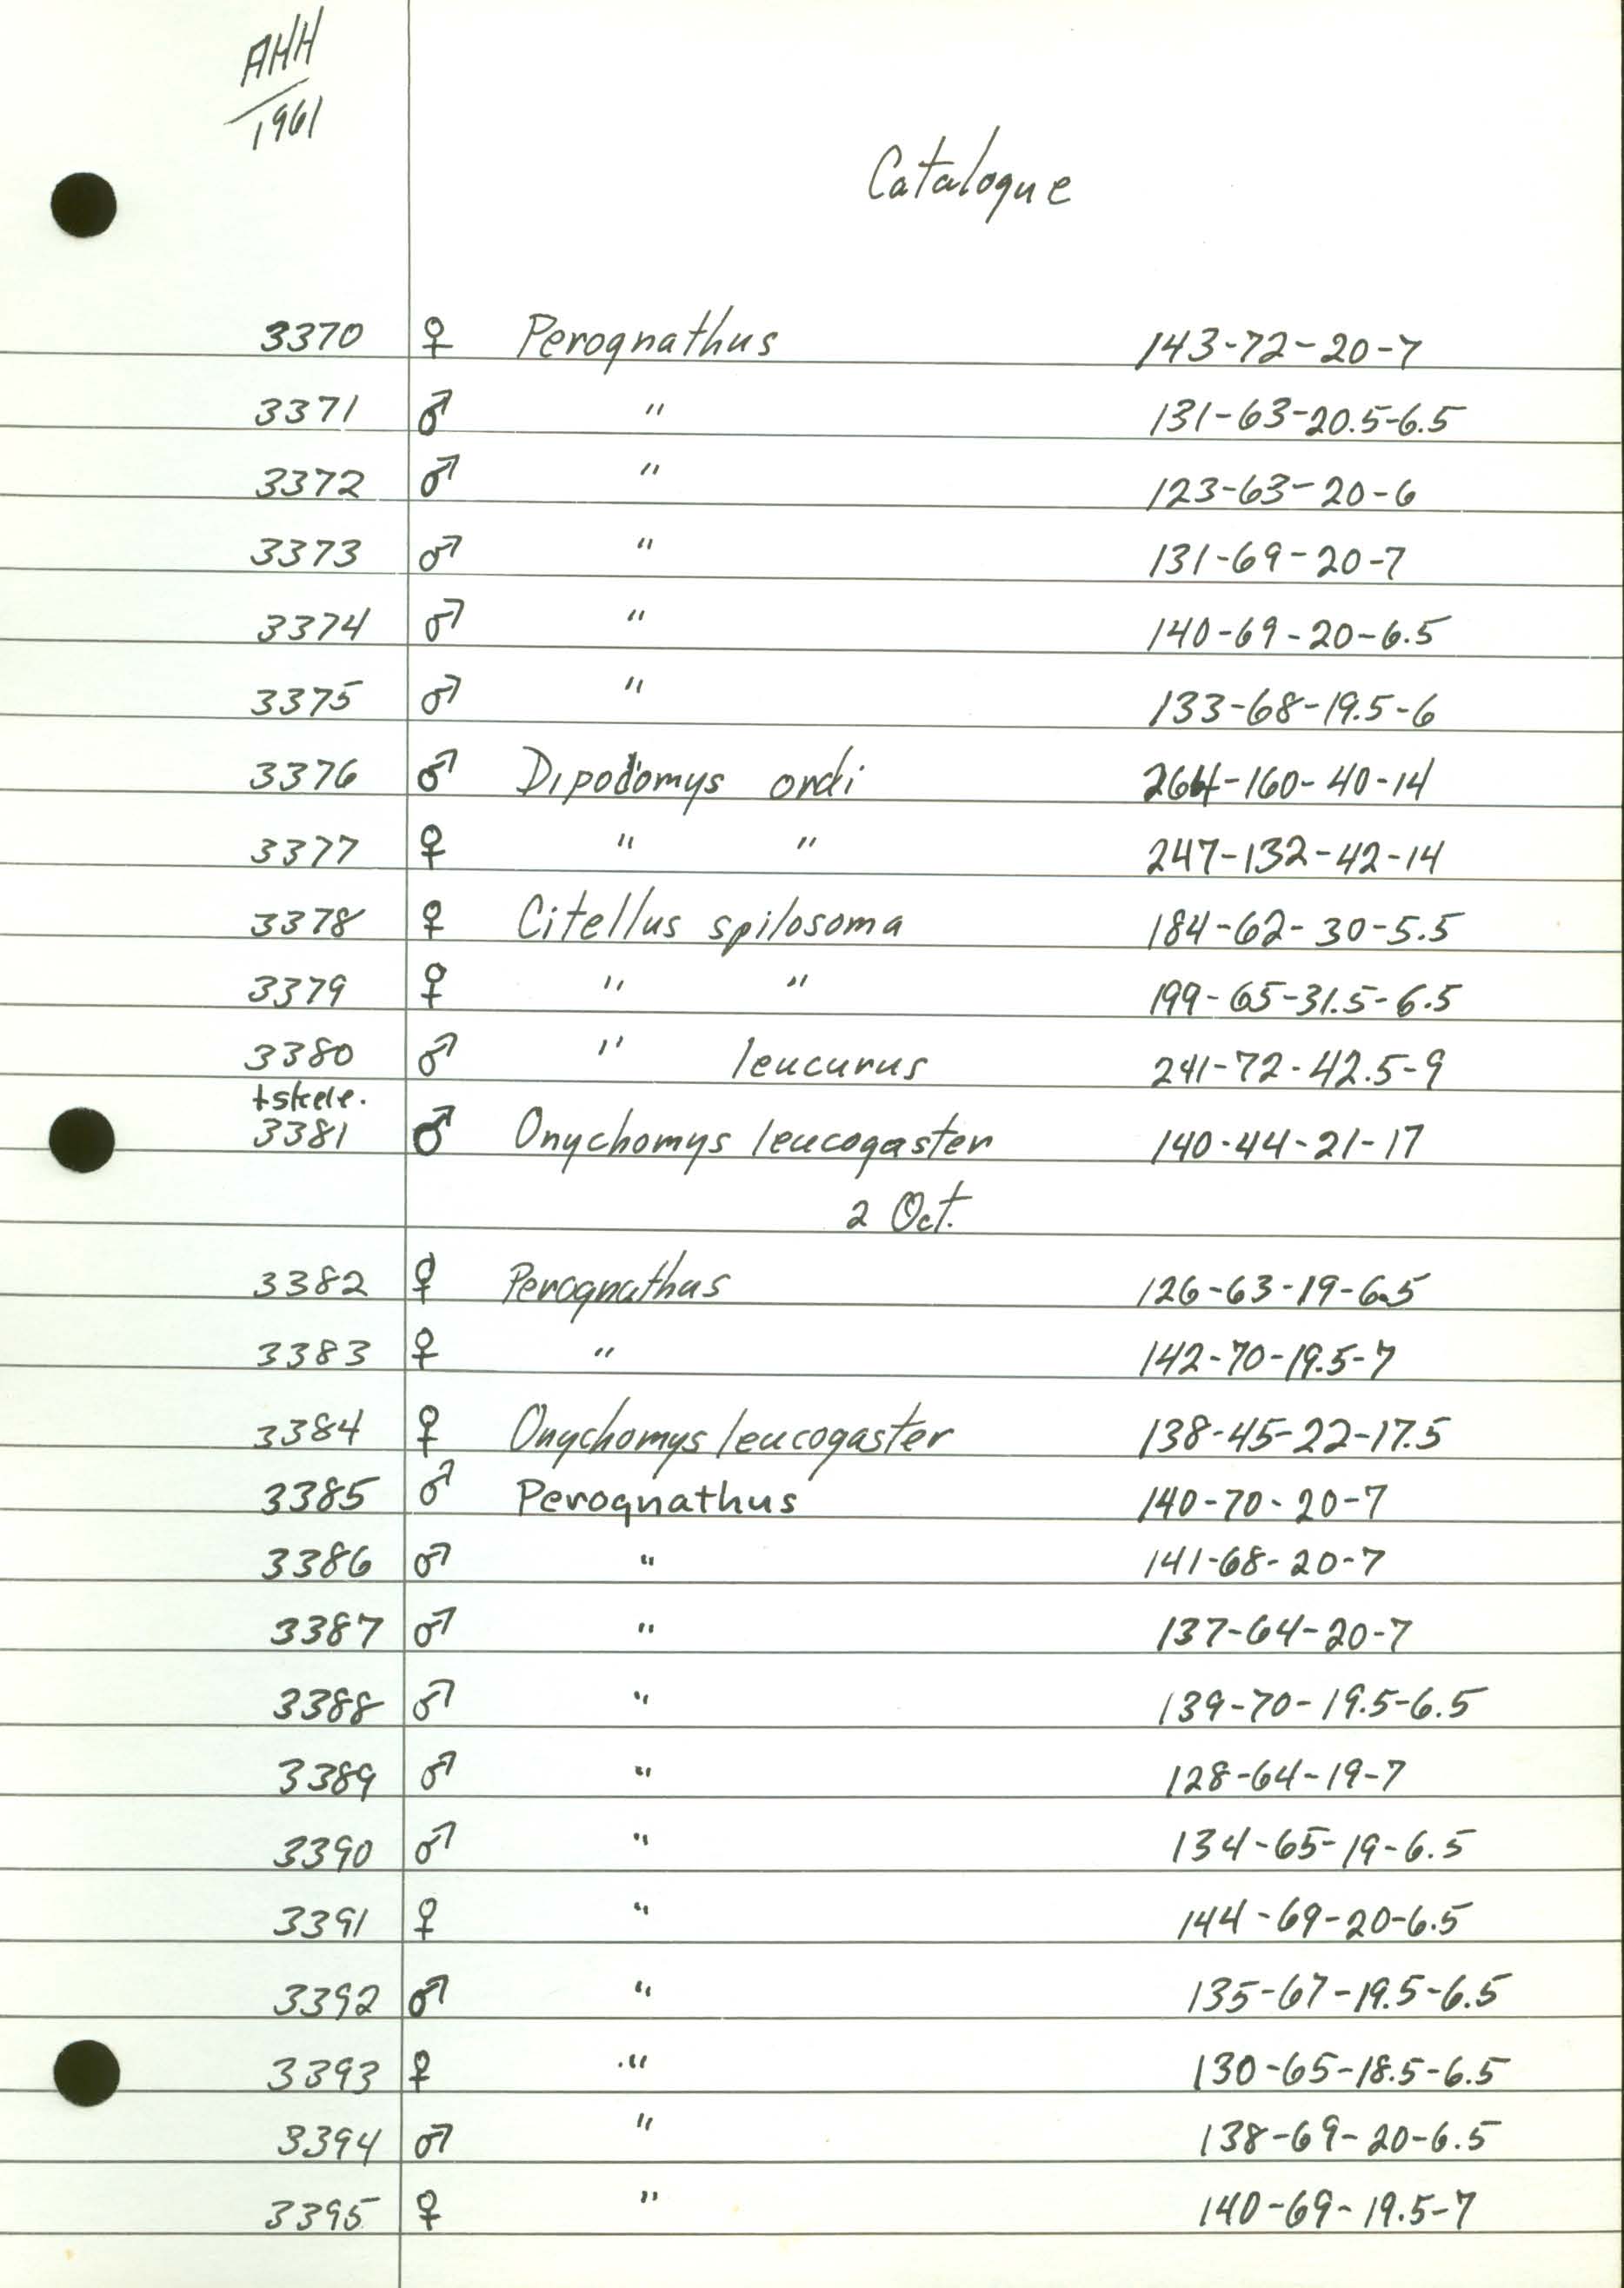 AHH
1961
Catalogue
3370 ♀ Perognathus 143-72-20-7
3371 ♂ " 131-63-20.5-6.5
3372 ♂ " 123-63-20-6
3373 ♂ " 131-69-20-7
3374 ♂ " 140-69-20-6.5
3375 ♂ " 133-68-19.5-6
3376 ♂ Dipodomys ordi 264-160-40-14
3377 ♀ " " 247-132-42-14
3378 ♀ Citellus spilosoma 184-62-30-5.5
3379 ♀ " " 199-65-31.5-6.5
3380 ♂ " leucurus 241-72-42.5-9
+skele.
3381 ♂ Onychomys leucogaster 140-44-21-17
2 Oct.
3382 ♀ Perognathus 126-63-19-6.5
3383 ♀ " 142-70-19.5-7
3384 ♀ Onychomys leucogaster 138-45-22-17.5
3385 ♂ Perognathus 140-70-20-7
3386 ♂ " 141-68-20-7
3387 ♂ " 137-64-20-7
3388 ♂ " 139-70-19.5-6.5
3389 ♂ " 128-64-19-7
3390 ♂ " 134-65-19-6.5
3391 ♀ " 144-69-20-6.5
3392 ♂ " 135-67-19.5-6.5
3393 ♀ " 130-65-18.5-6.5
3394 ♂ " 138-69-20-6.5
3395 ♀ " 140-69-19.5-7